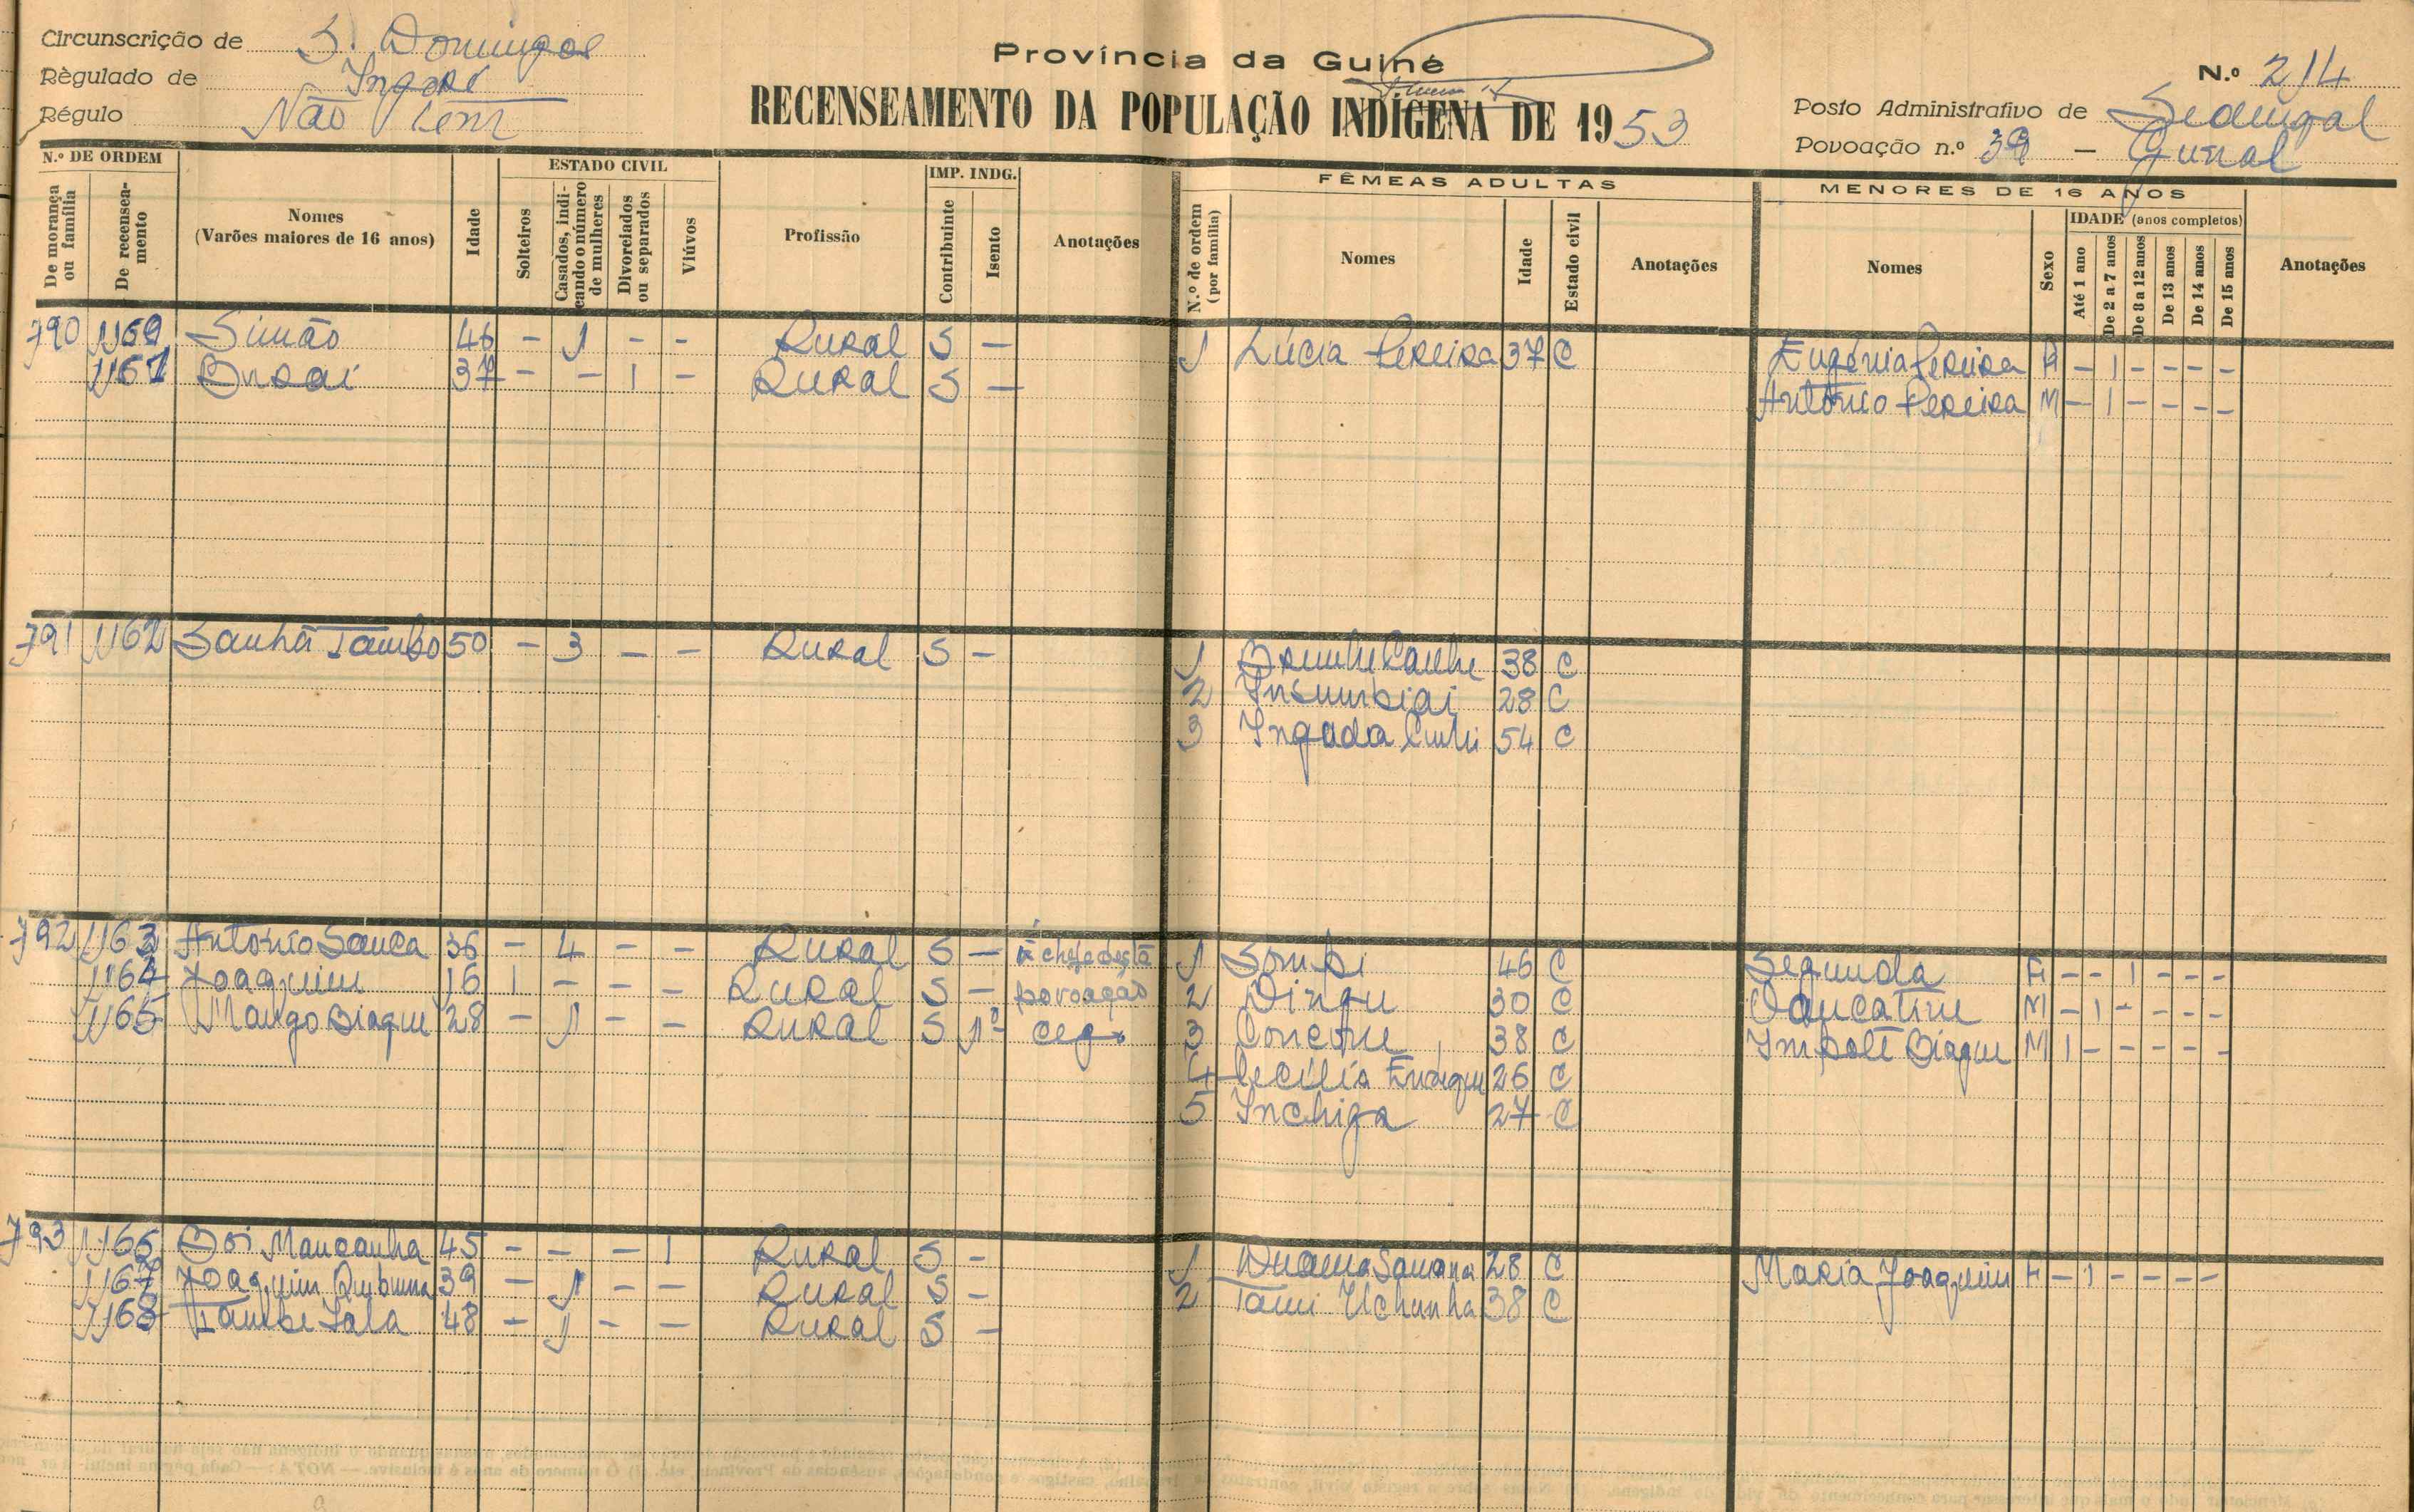 Circunscrição de S. Domingos
Règulado de Ingoré
Régulo Não tem
Província da Guiné
RECENSEAMENTO DA POPULAÇÃO INDÍGENA DE 1953
N.º 214
Posto Administrativo de Sedengal
Povoação n.º 39 –
N.º DE ORDEM
De morança ou família
De recenseamento
Nomes
(Varões maiores de 16 anos)
Idade
ESTADO CIVIL
Solteiros
Casados, indicando o número de mulheres
Divorciados ou separados
Viúvos
Profissão
IMP. INDG.
Contribuinte
Isento
Anotações
FÊMEAS ADULTAS
N.º de ordem (por família)
Nomes
Idade
Estado civil
Anotações
MENORES DE 16 ANOS
Nomes
Sexo
IDADE (anos completos)
Até 1 ano
De 2 a 7 anos
De 8 a 12 anos
De 13 anos
De 14 anos
De 15 anos
Anotações
790 Simão 46 – 1 – – Rural S – 1 Lúcia Pereira 37 C Eugénia Pereira F – 1 – – – –
1161 37 – – 1 – Rural S – António Pereira M – 1 – – – –
791 1162 Sanhá Tambo 50 – 3 – – Rural S – 1 38 C
2 28 C
3 Ingada 54 C
792 1163 António Sanca 36 – 4 – – Rural S – É chefe desta 1 Sombi 46 C Segunda F – – 1 – – –
1164 Joaquim 16 1 – – – Rural S – povoação 2 Dingu 30 C M – 1 – – – –
1165 Mango Biague 28 – 1 – – Rural S 1º cego 3 38 C Biague M 1 – – – – –
4 Cecília 26 C
5 Inchiga 27 C
793 1166 Boi Mancanha 45 – – – 1 Rural S – 1 28 C Maria Joaquim F – 1 – – – –
1167 Joaquim 39 – 1 – – Rural S – 2 38 C
1168 48 – 1 – – Rural S –